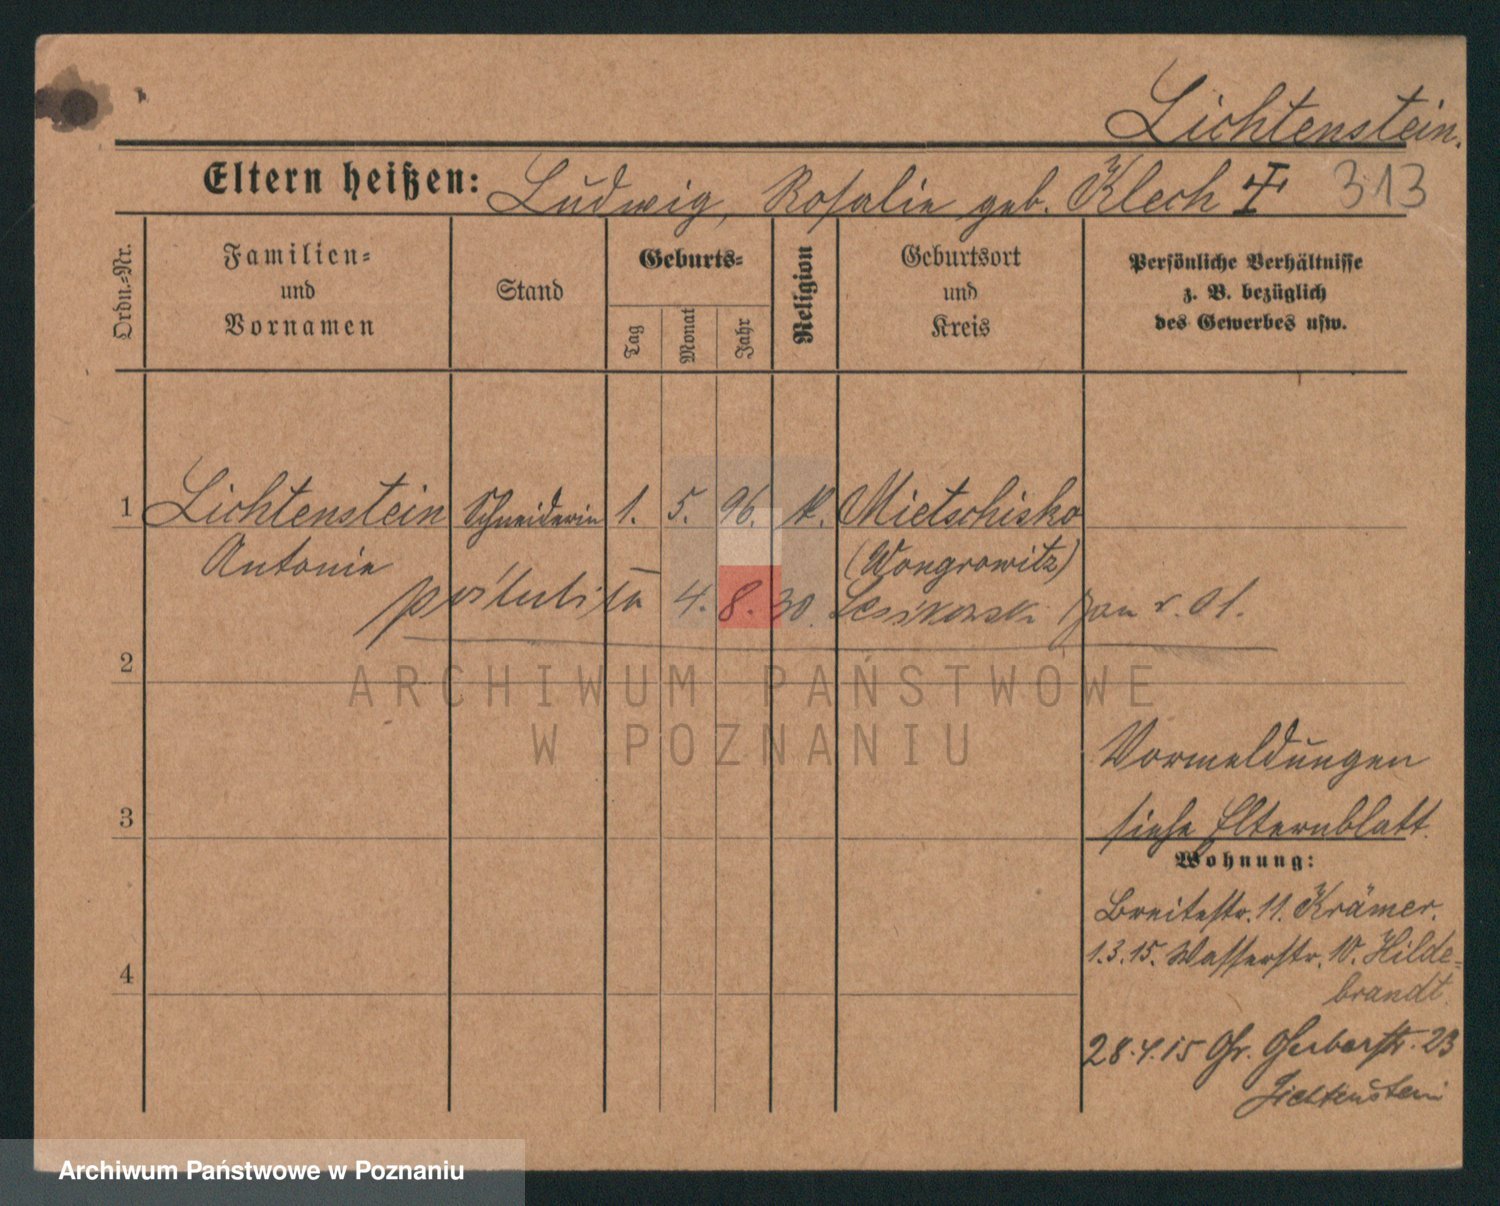 Lichtenstein.
Eltern heißen: Ludwig, Rosalie geb. Klech 313
Ordn.-Nr.
Familien-
und
Vornamen
Stand
Geburts-
Tag
Monat
Jahr
Religion
Geburtsort
und
Kreis
Persönliche Verhältnisse
z. B. bezüglich
des Gewerbes usw.
1 Lichtenstein Schneiderin 1. 5. 96. k. Mietschisko
Antonie (Wongrowitz)
4. 8. 30.
2
ARCHIWUM PAŃSTWOWE
W POZNANIU
Vormeldungen
siehe Elternblatt.
3
Wohnung:
Breitestr. 11. Krämer.
1.3.15. Wasserstr. 10. Hilde-
brandt.
4
28.4.15 Gr. Gerberstr. 23
Lichtenstein
Archiwum Państwowe w Poznaniu